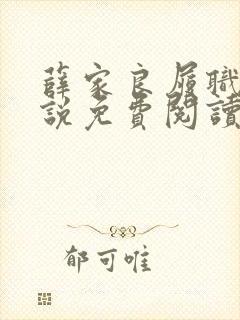 薛家良履職
說免費閱讀
郁可唯